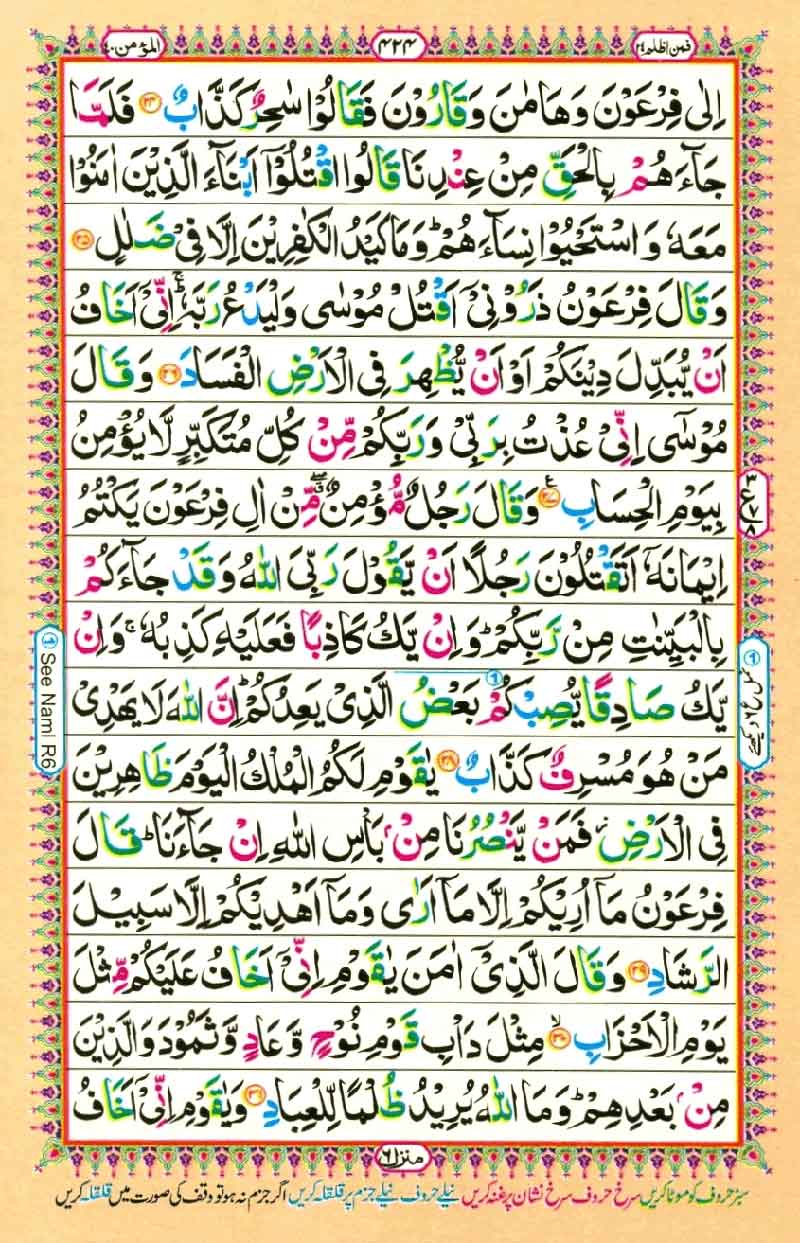 المؤمن ٤٠
٤٢٤
فمن اظلم ٢٤
اِلٰى فِرْعَوْنَ وَهَامٰنَ وَقَارُوْنَ فَقَالُوْا سٰحِرٌ كَذَّابٌ ﴿٢٤﴾ فَلَمَّا
جَآءَهُمْ بِالْحَقِّ مِنْ عِنْدِنَا قَالُوا اقْتُلُوْٓا اَبْنَآءَ الَّذِيْنَ اٰمَنُوْا
مَعَهٗ وَاسْتَحْيُوْا نِسَآءَهُمْ ؕ وَمَا كَيْدُ الْكٰفِرِيْنَ اِلَّا فِيْ ضَلٰلٍ ﴿٢٥﴾
وَقَالَ فِرْعَوْنُ ذَرُوْنِيْٓ اَقْتُلْ مُوْسٰى وَلْيَدْعُ رَبَّهٗ ۚ اِنِّيْٓ اَخَافُ
اَنْ يُّبَدِّلَ دِيْنَكُمْ اَوْ اَنْ يُّظْهِرَ فِي الْاَرْضِ الْفَسَادَ ﴿٢٦﴾ وَقَالَ
مُوْسٰٓى اِنِّيْ عُذْتُ بِرَبِّيْ وَرَبِّكُمْ مِّنْ كُلِّ مُتَكَبِّرٍ لَّا يُؤْمِنُ
بِيَوْمِ الْحِسَابِ ﴿٢٧﴾ وَقَالَ رَجُلٌ مُّؤْمِنٌ ۖ مِّنْ اٰلِ فِرْعَوْنَ يَكْتُمُ
اِيْمَانَهٗٓ اَتَقْتُلُوْنَ رَجُلًا اَنْ يَّقُوْلَ رَبِّيَ اللّٰهُ وَقَدْ جَآءَكُمْ
بِالْبَيِّنٰتِ مِنْ رَّبِّكُمْ ؕ وَاِنْ يَّكُ كَاذِبًا فَعَلَيْهِ كَذِبُهٗ ۚ وَاِنْ
يَّكُ صَادِقًا يُّصِبْكُمْ بَعْضُ الَّذِيْ يَعِدُكُمْ ؕ اِنَّ اللّٰهَ لَا يَهْدِيْ
مَنْ هُوَ مُسْرِفٌ كَذَّابٌ ﴿٢٨﴾ يٰقَوْمِ لَكُمُ الْمُلْكُ الْيَوْمَ ظَاهِرِيْنَ
فِي الْاَرْضِ ؗ فَمَنْ يَّنْصُرُنَا مِنْۢ بَاْسِ اللّٰهِ اِنْ جَآءَنَا ؕ قَالَ
فِرْعَوْنُ مَآ اُرِيْكُمْ اِلَّا مَآ اَرٰى وَمَآ اَهْدِيْكُمْ اِلَّا سَبِيْلَ
الرَّشَادِ ﴿٢٩﴾ وَقَالَ الَّذِيْٓ اٰمَنَ يٰقَوْمِ اِنِّيْٓ اَخَافُ عَلَيْكُمْ مِّثْلَ
يَوْمِ الْاَحْزَابِ ﴿٣٠﴾ مِثْلَ دَاْبِ قَوْمِ نُوْحٍ وَّعَادٍ وَّثَمُوْدَ وَالَّذِيْنَ
مِنْۢ بَعْدِهِمْ ؕ وَمَا اللّٰهُ يُرِيْدُ ظُلْمًا لِّلْعِبَادِ ﴿٣١﴾ وَيٰقَوْمِ اِنِّيْٓ اَخَافُ
See Naml R6
منزل ٦
سبز حروف کو موٹا کریں سرخ حروف سرخ نشان پر غنہ کریں نیلے حروف نیلے جزم پر قلقلہ کریں اگر جزم نہ ہو تو وقف کی صورت میں قلقلہ کریں